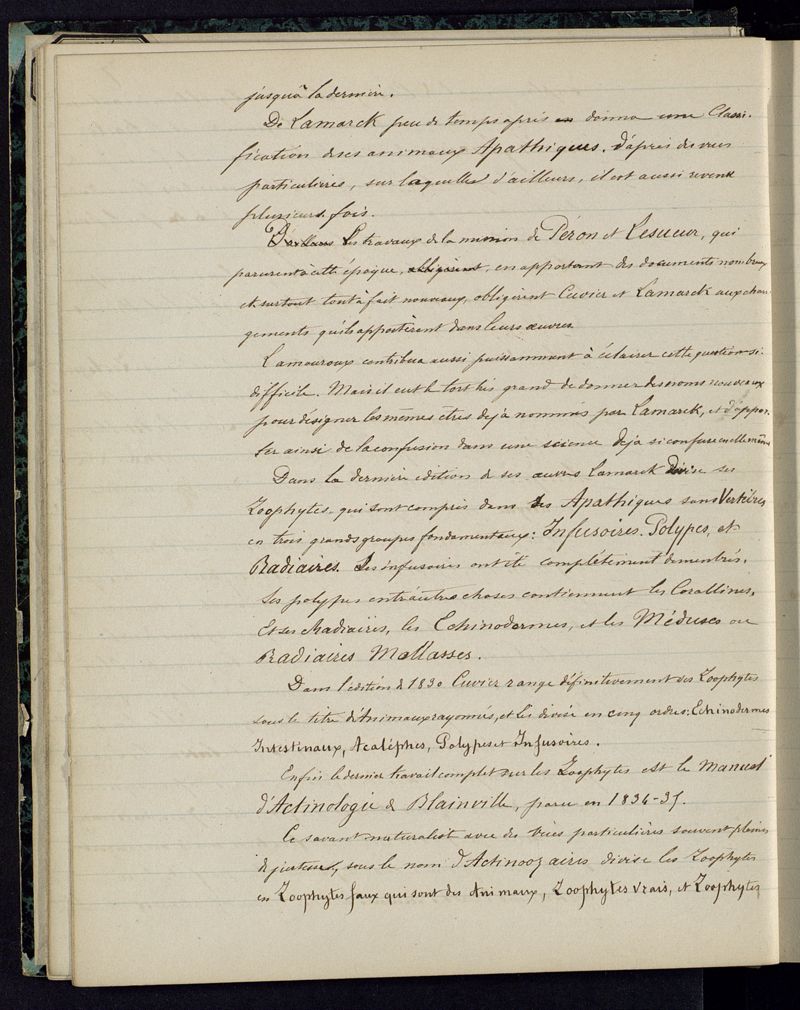 jusqu'à la dernière.
De Lamarck peu de temps après donna une Classi-
fication de ses animaux Apathiques. d'après des vues
particulières, sur laquelle d'ailleurs, il est aussi revenu
plusieurs fois.
Les travaux de la mission de Péron et Lesueur, qui
parurent à cette époque, en apportant des documents nombreux
et surtout tout à fait nouveaux, obligèrent Cuvier et Lamarck aux chan-
gements qu'ils apportèrent dans leurs œuvres
Lamouroux contribua aussi puissamment à éclairer cette question si
difficile. Mais il eut le tort très grand de donner des noms nouveaux
pour désigner les mêmes êtres dejà nommés par Lamarck, et d'appor-
ter ainsi de la confusion dans une science dejà si confuse en elle même
Dans la dernière edition de ses œuvres Lamarck divise ses
Zoophytes qui sont compris dans les Apathiques sans Vertèbres
en trois grands groupes fondamentaux: Infusoires. Polypes, et
Radiaires. Les infusoires ont été complètement demembrés.
Ses polypes entr'autres choses contiennent les Corallines,
Et ses Radiaires, les Echinodermes, et les Méduses ou
Radiaires Mollasses.
Dans l'edition de 1830 Cuvier range définitivement ses Zoophytes
sous le titre d'Animaux rayonnés, et les divise en cinq ordres: Echinodermes
Intestinaux, Acalèphes, Polypes et Infusoires.
Enfin le dernier travail complet sur les Zoophytes est le Manuel
d'Actinologie de Blainville, paru en 1834-35.
Ce savant naturalist avec des vues particulières souvent pleines
de justesse, sous le nom d'Actinoozaires divise les Zoophytes
en Zoophytes faux qui sont des Animaux, Zoophytes vrais, et Zoophytes